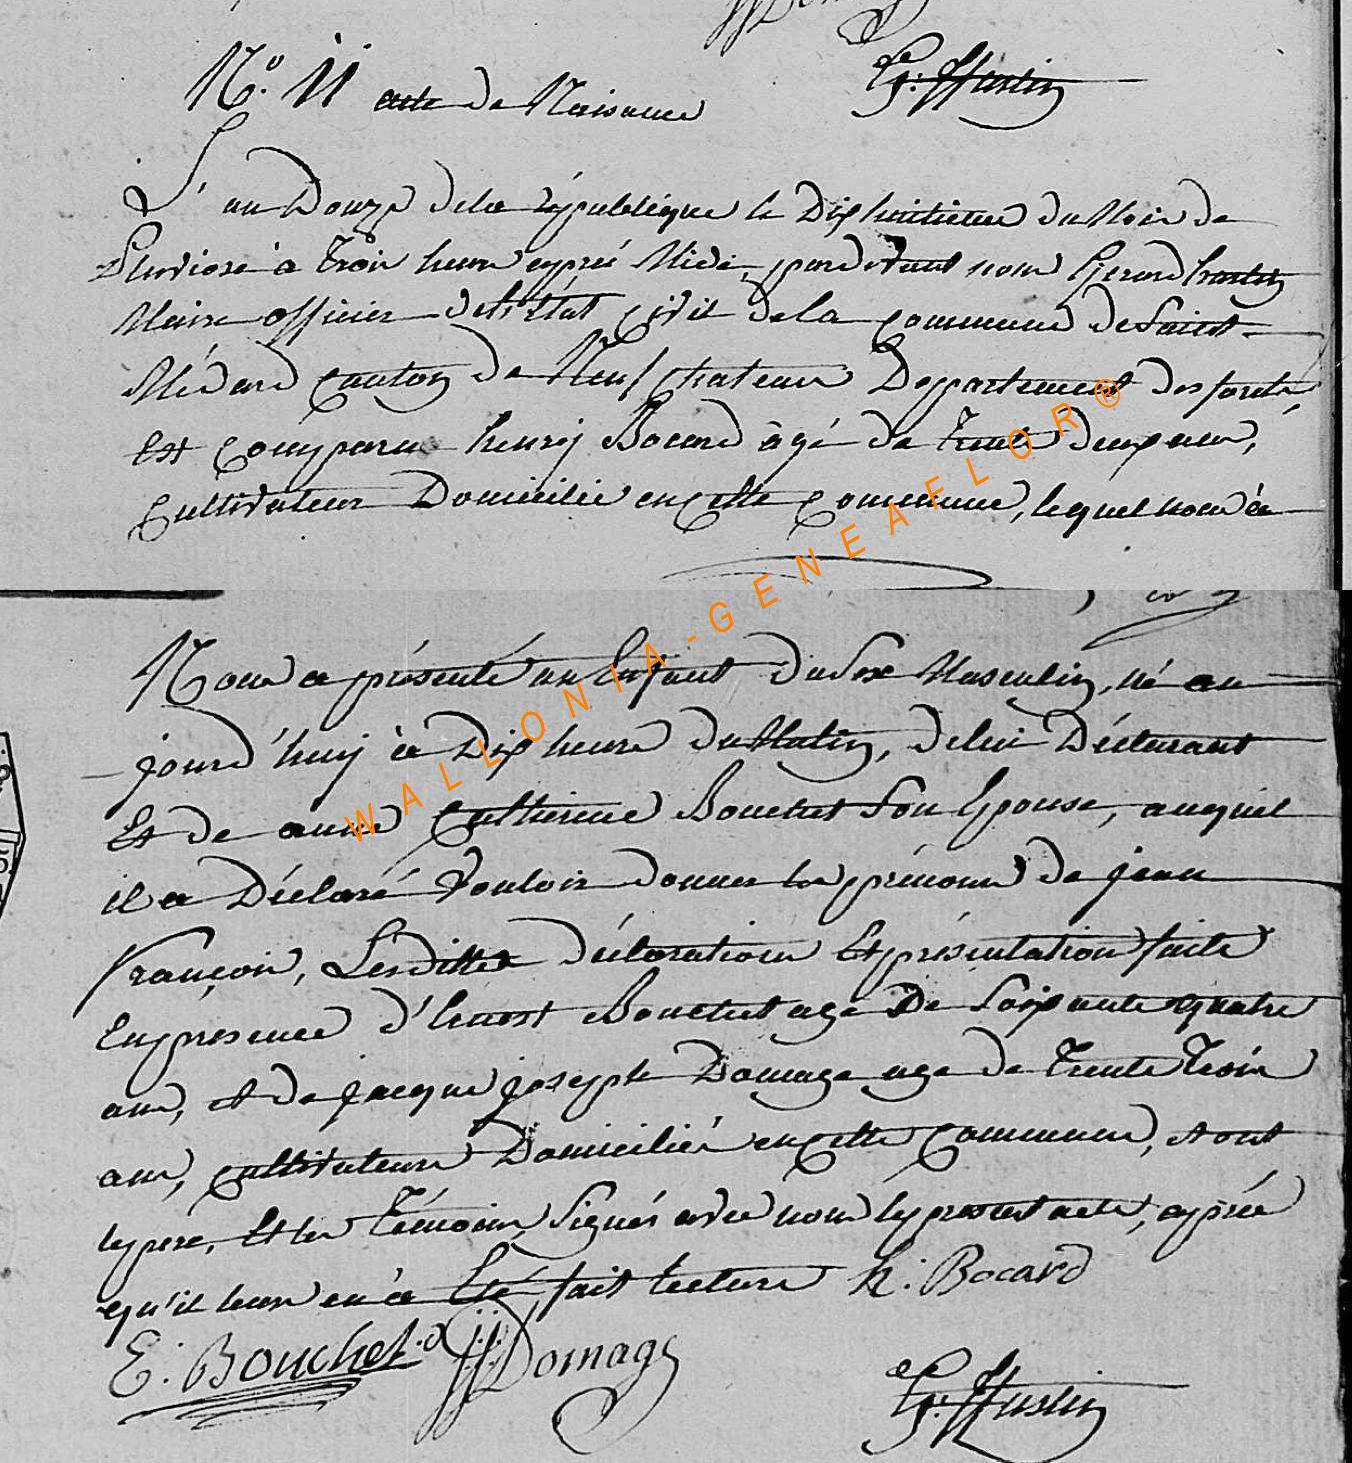 N.o 11 acte de Naisance
G: Hustin
L'an Douze dela république le Dix huitieme du Mois de
Pluviose à Trois heure après Midi, pardevant nous Gerard hustin
Maire officier del'état civil dela commune de Saint
Médard canton de Neufchateau Departement des forets
Est comparu henrij Bocard àgé de Trente deux ans,
cultivateur Domicilié en cette commune, lequel nous à
Nous a présenté un Enfant du Sexe Masculin, né au
jourd'huij à Dix heure du Matin, delui Déclarant
Et de anne Catherine Bouchet Son Epouse, auquel
il a Déclaré Vouloir donner les prénoms de jean
François, Lesdittes déclaration Et présentation faite
En presence d'Ernest Bouchet age De Soixante quatre
ans, et de jacque joseph Domage age de Trente Trois
ans, cultivateurs Domiciliés en cette commune, et ont
le pere, Et les Témoins, Signés avec nous le present acte, après
qu'il leur en à Eté fait lecture h: Bocard
E: Bouchet. JJ Domage
G: Hustin
WALLONIA-GENEAFLOR®